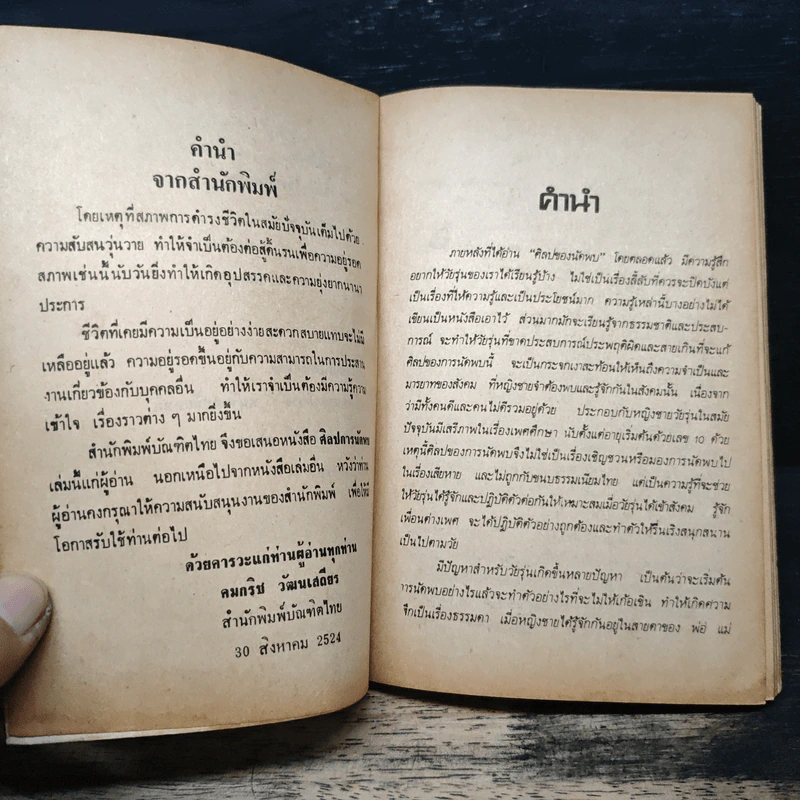 คำนำ
จากสำนักพิมพ์
โดยเหตุที่สภาพการดำรงชีวิตในสมัยปัจจุบันเต็มไปด้วย
ความสับสนวุ่นวาย ทำให้จำเป็นต้องต่อสู้ดิ้นรนเพื่อความอยู่รอด
สภาพเช่นนี้นับวันยิ่งทำให้เกิดอุปสรรคและความยุ่งยากนานา
ประการ
ชีวิตที่เคยมีความเป็นอยู่อย่างง่ายสะดวกสบายแทบจะไม่มี
เหลืออยู่แล้ว ความอยู่รอดขึ้นอยู่กับความสามารถในการประสาน
งานเกี่ยวข้องกับบุคคลอื่น ทำให้เราจำเป็นต้องมีความรู้ความ
เข้าใจ เรื่องราวต่าง ๆ มากยิ่งขึ้น
สำนักพิมพ์บัณฑิตไทย จึงขอเสนอหนังสือ ศิลปการนัดพบ
เล่มนี้แก่ผู้อ่าน นอกเหนือไปจากหนังสือเล่มอื่น หวังว่าท่าน
ผู้อ่านคงกรุณาให้ความสนับสนุนงานของสำนักพิมพ์ เพื่อให้มี
โอกาสรับใช้ท่านต่อไป
ด้วยคารวะแก่ท่านผู้อ่านทุกท่าน
คมกริช วัฒนเสถียร
สำนักพิมพ์บัณฑิตไทย
30 สิงหาคม 2524
คำนำ
ภายหลังที่ได้อ่าน “ศิลปของนัดพบ” โดยตลอดแล้ว มีความรู้สึก
อยากให้วัยรุ่นของเราได้เรียนรู้บ้าง ไม่ใช่เป็นเรื่องลี้ลับที่ควรจะปิดบังแต่
เป็นเรื่องที่ให้ความรู้และเป็นประโยชน์มาก ความรู้เหล่านี้บางอย่างไม่ได้
เขียนเป็นหนังสือเอาไว้ ส่วนมากมักจะเรียนรู้จากธรรมชาติและประสบ-
การณ์ จะทำให้วัยรุ่นที่ขาดประสบการณ์ประพฤติผิดและสายเกินที่จะแก้
ศิลปของการนัดพบนี้ จะเป็นกระจกเงาสะท้อนให้เห็นถึงความจำเป็นและ
มารยาทของสังคม ที่หญิงชายจำต้องพบและรู้จักกันในสังคมนั้น เนื่องจาก
ว่ามีทั้งคนดีและคนไม่ดีรวมอยู่ด้วย ประกอบกับหญิงชายวัยรุ่นในสมัย
ปัจจุบันมีเสรีภาพในเรื่องเพศศึกษา นับตั้งแต่อายุเริ่มต้นด้วยเลข 10 ด้วย
เหตุนี้ศิลปของการนัดพบจึงไม่ใช่เป็นเรื่องเชิญชวนหรือมองการนัดพบไป
ในเรื่องเสียหาย และไม่ถูกกับขนบธรรมเนียมไทย แต่เป็นความรู้ที่จะช่วย
ให้วัยรุ่นได้รู้จักและปฏิบัติตัวต่อกันให้เหมาะสมเมื่อวัยรุ่นได้เข้าสังคม รู้จัก
เพื่อนต่างเพศ จะได้ปฏิบัติตัวอย่างถูกต้องและทำตัวให้รื่นเริงสนุกสนาน
เป็นไปตามวัย
มีปัญหาสำหรับวัยรุ่นเกิดขึ้นหลายปัญหา เป็นต้นว่าจะเริ่มต้น
การนัดพบอย่างไรแล้วจะทำตัวอย่างไรที่จะไม่ให้เก้อเขิน ทำให้เกิดความ
รู้จักเป็นเรื่องธรรมดา เมื่อหญิงชายได้รู้จักกันอยู่ในสายตาของ พ่อ แม่